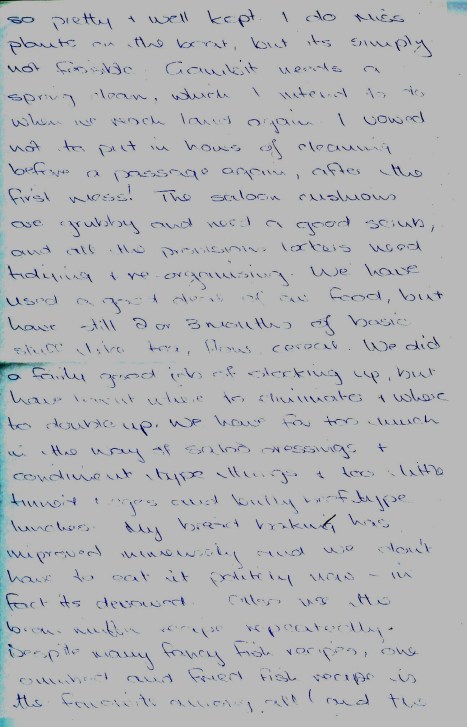 so pretty + well kept. I do miss
plants on the boat, but its simply
not feasible. Gambit needs a
spring clean, which I intend to do
when we reach land again. I vowed
not to put in hours of cleaning
before a passage again, after the
first mess! The saloon cushions
are grubby and need a good scrub,
and all the provisions lockers need
tidying + re-organising. We have
used a good deal of our food, but
have still 2 or 3 months of basic
stuff like tea, flour, cereal. We did
a fairly good job of stocking up, but
have learnt where to eliminate + where
to double up. We have far too much
in the way of salad dressings +
condiment type things + too little
tinned and bully beef type
lunches. My bread baking has
improved immensely and we don't
have to eat it politely now - in
fact its devoured. Also use the
bran muffin recipe repeatedly.
Despite many fancy fish recipes, one
crumbed and fried fish recipe is
the favourite among all! and the